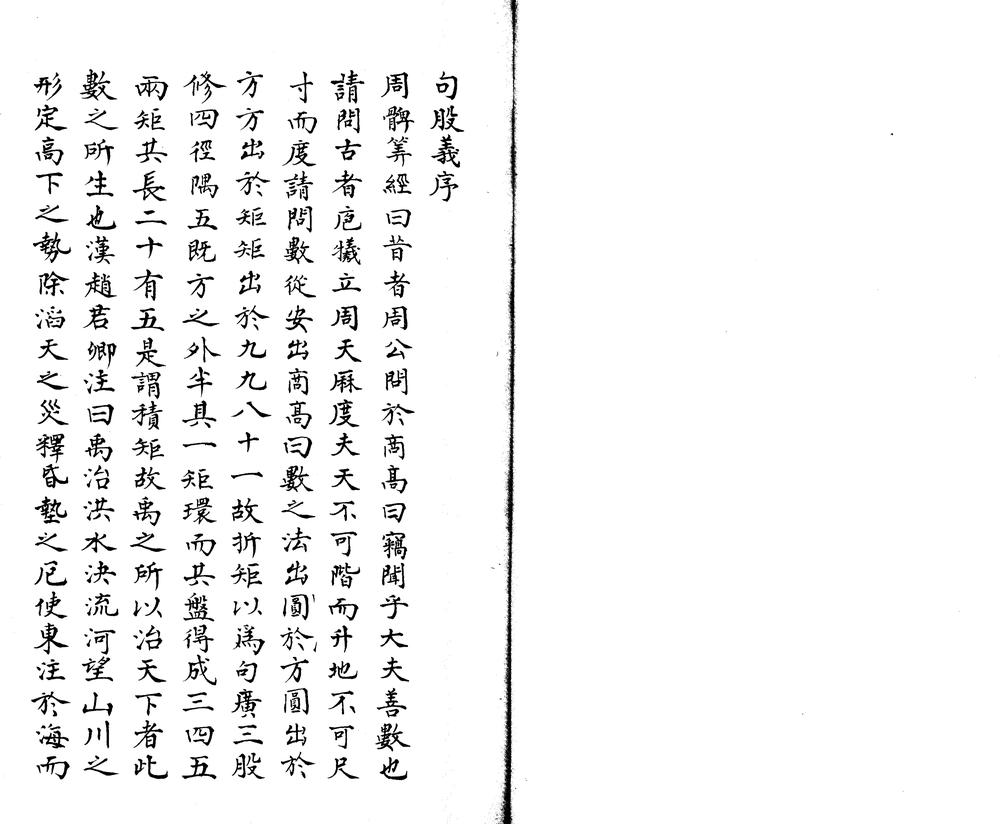 句股義序
周髀筭經曰昔者周公問於商髙曰竊聞乎大夫善數也
請問古者庖犧立周天厤度夫天不可階而升地不可尺
寸而度請問數從安出商髙曰數之法出圓於方圓出於
方方出於矩矩出於九九八十一故折矩以爲句廣三股
修四徑隅五既方之外半具一矩環而共盤得成三四五
兩矩共長二十有五是謂積矩故禹之所以治天下者此
數之所生也漢趙君卿注曰禹治洪水決流河望山川之
形定高下之勢除滔天之災釋昏墊之厄使東注於海而